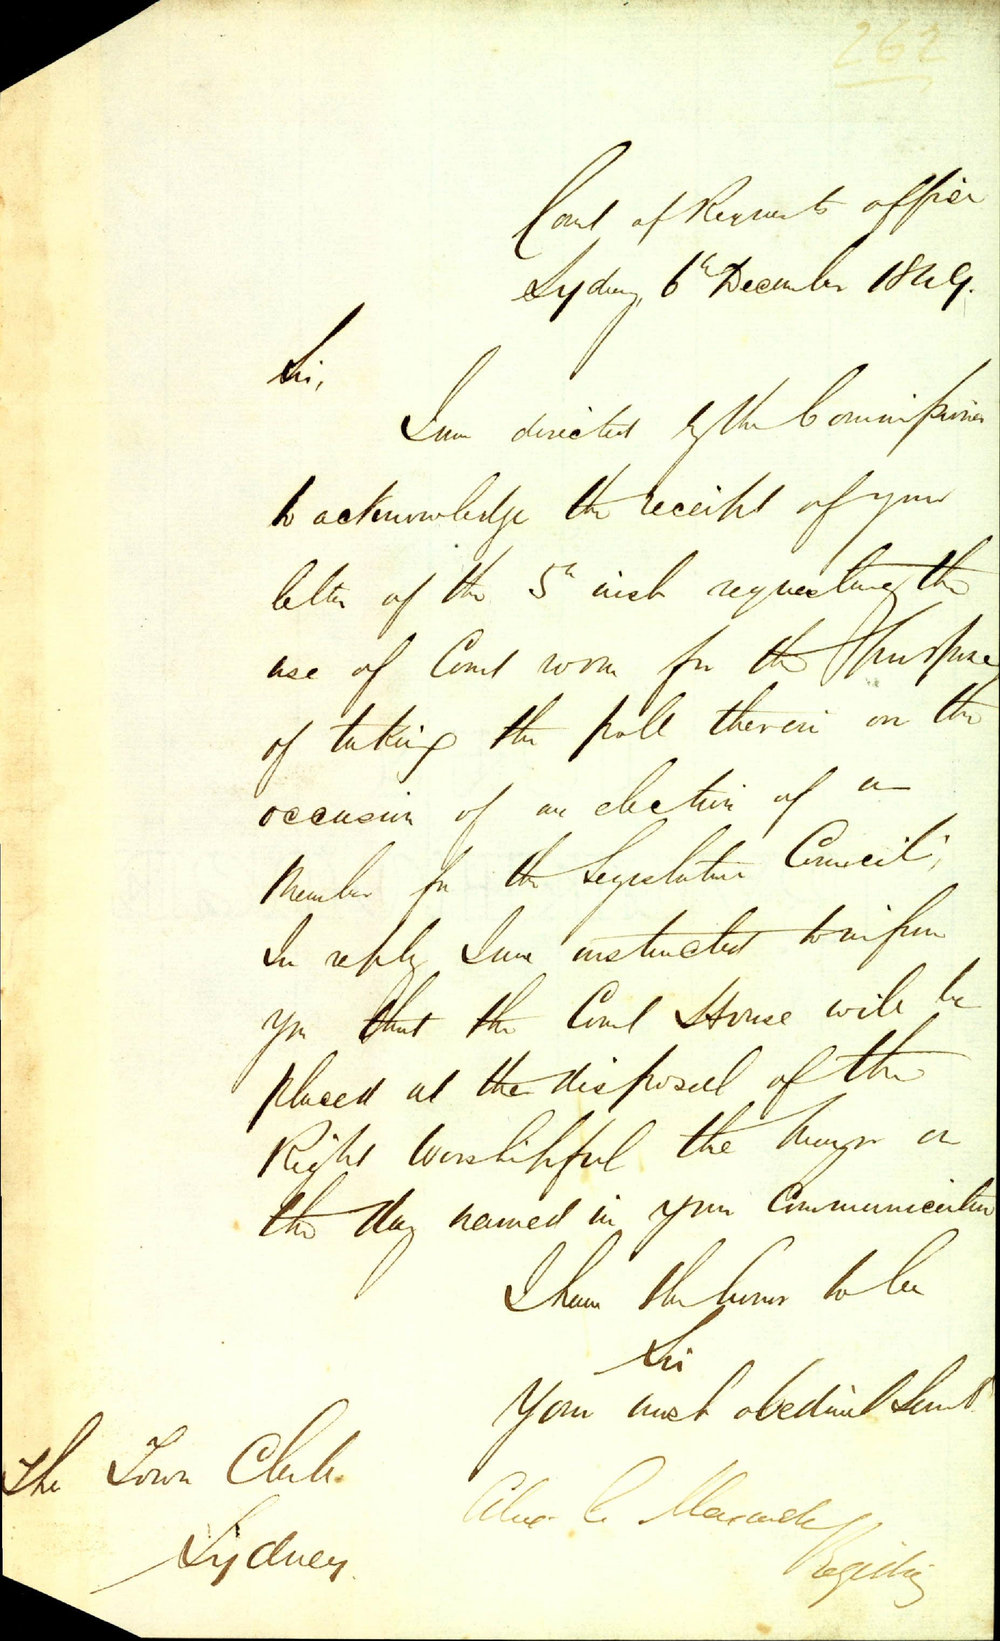 262
Court of Requests office
Sydney, 6th December 1849.
Sir,
I am directed by the Commissioner
to acknowledge the receipt of your
letter of the 5th inst requesting the
use of Court room for the purpose
of taking the poll therein on the
occasion of an election of a
Member for the Legislative Council;
In reply I am instructed to inform
you that the Court House will be
placed at the disposal of the
Right Worshipful the Mayor on
the day named in your Communication
I have the honor to be
Sir
Your most obedient Servt
Registrar
The Town Clerk.
Sydney.